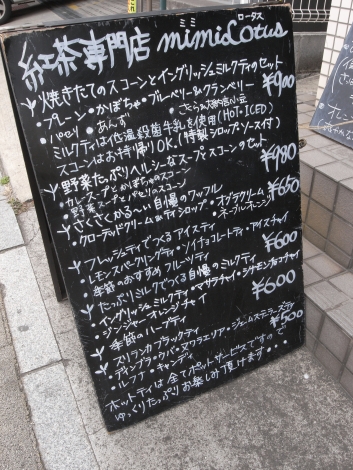 紅茶専門店 mimiLotus
ミミ ロータス
焼きたてのスコーンとイングリッシュミルクティのセット
¥900
・プレーン・かぼちゃ・ブルーベリー&クランベリー
・パセリ・あんず
ミルクティは低温殺菌牛乳を使用(HOT・ICED)
スコーンはお持帰りOK.(特製シロップ・ソース付)
野菜たっぷりヘルシーなスープとスコーンのセット
¥980
・カレースープとかぼちゃのスコーン
・野菜スープとパセリのスコーン
さくさくかるーい自慢のワッフル
¥650
・クローテッドクリーム&ティシロップ・オグラクリーム
フレッシュティでつくるアイスティ
・レモンスパークリングティ・ソイチョコレートティ・アイスチャイ
・季節のおすすめフルーツティ
¥600
たっぷりミルクでつくる自慢のミルクティ
・イングリッシュミルクティ・マサラチャイ・シナモンチョコチャイ
・ジンジャーオレンジチャイ
¥600
季節のハーブティ
スリランカブラックティ
・ディンブラ・ウバ・ヌワラエリア・ジェームステーラーズティ
・ルフナ・キャンディ
¥500
ホットティは全てポットサービスですので
ゆっくりたっぷりお楽しみ頂けます・・・